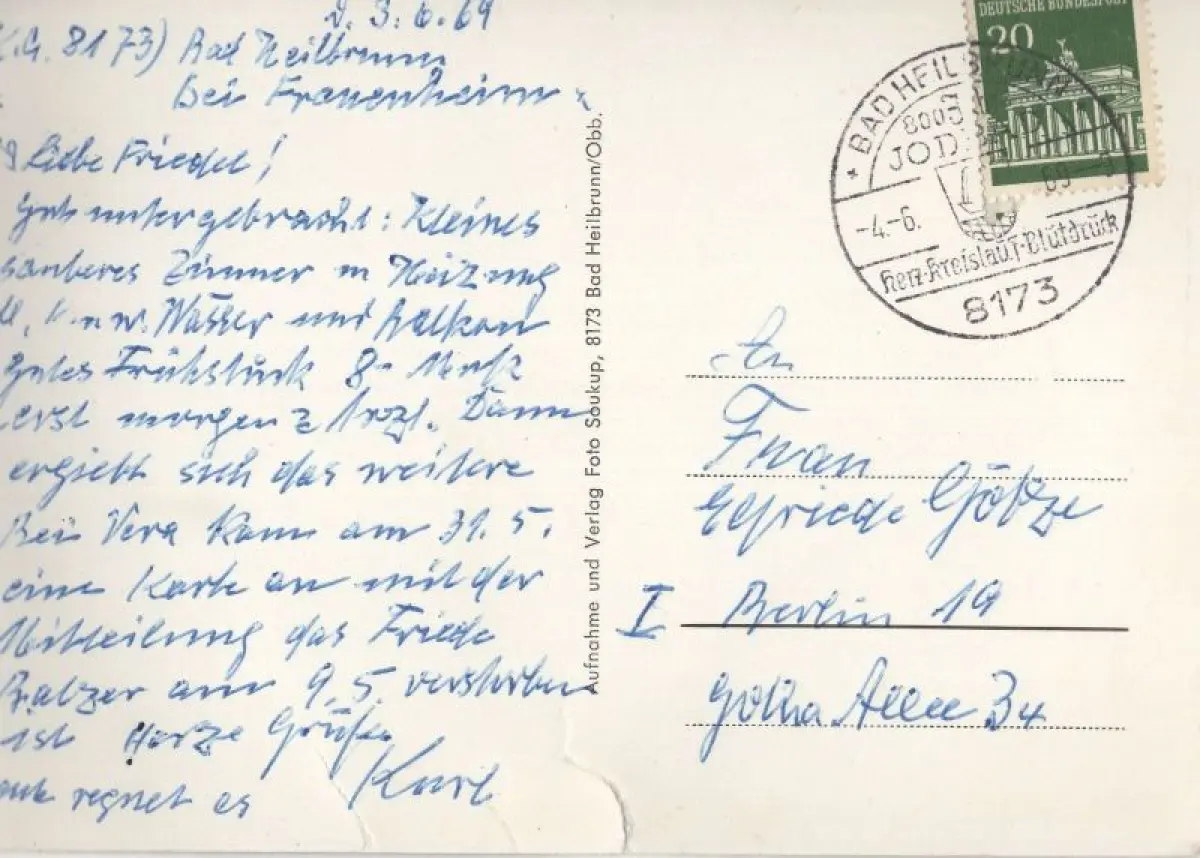 d. 3.6.69
8173) Bad Heilbrunn
bei Frauenheim
Liebe Friedel!
Gut untergebracht: Kleines
sauberes Zimmer m Heizung
u. w. Wasser und Balkon
gutes Frühstück 8-
erst morgen z Arzt. Dann
ergiebt sich das weitere
Bei Vera kam am 31.5.
eine Karte an mit der
Mitteilung das Friede
Balzer am 9.5. verstorben
ist Herze Grüße
regnet es Karl
Aufnahme und Verlag Foto Soukup, 8173 Bad Heilbrunn/Obb.
DEUTSCHE BUNDESPOST
20
BAD HEILBRUNN
JOD
-4.-6.
69-
Herz-Kreislauf-Blutdruck
8173
An
Frau
Elfriede Götze
I Berlin 19
Gotha Allee 34